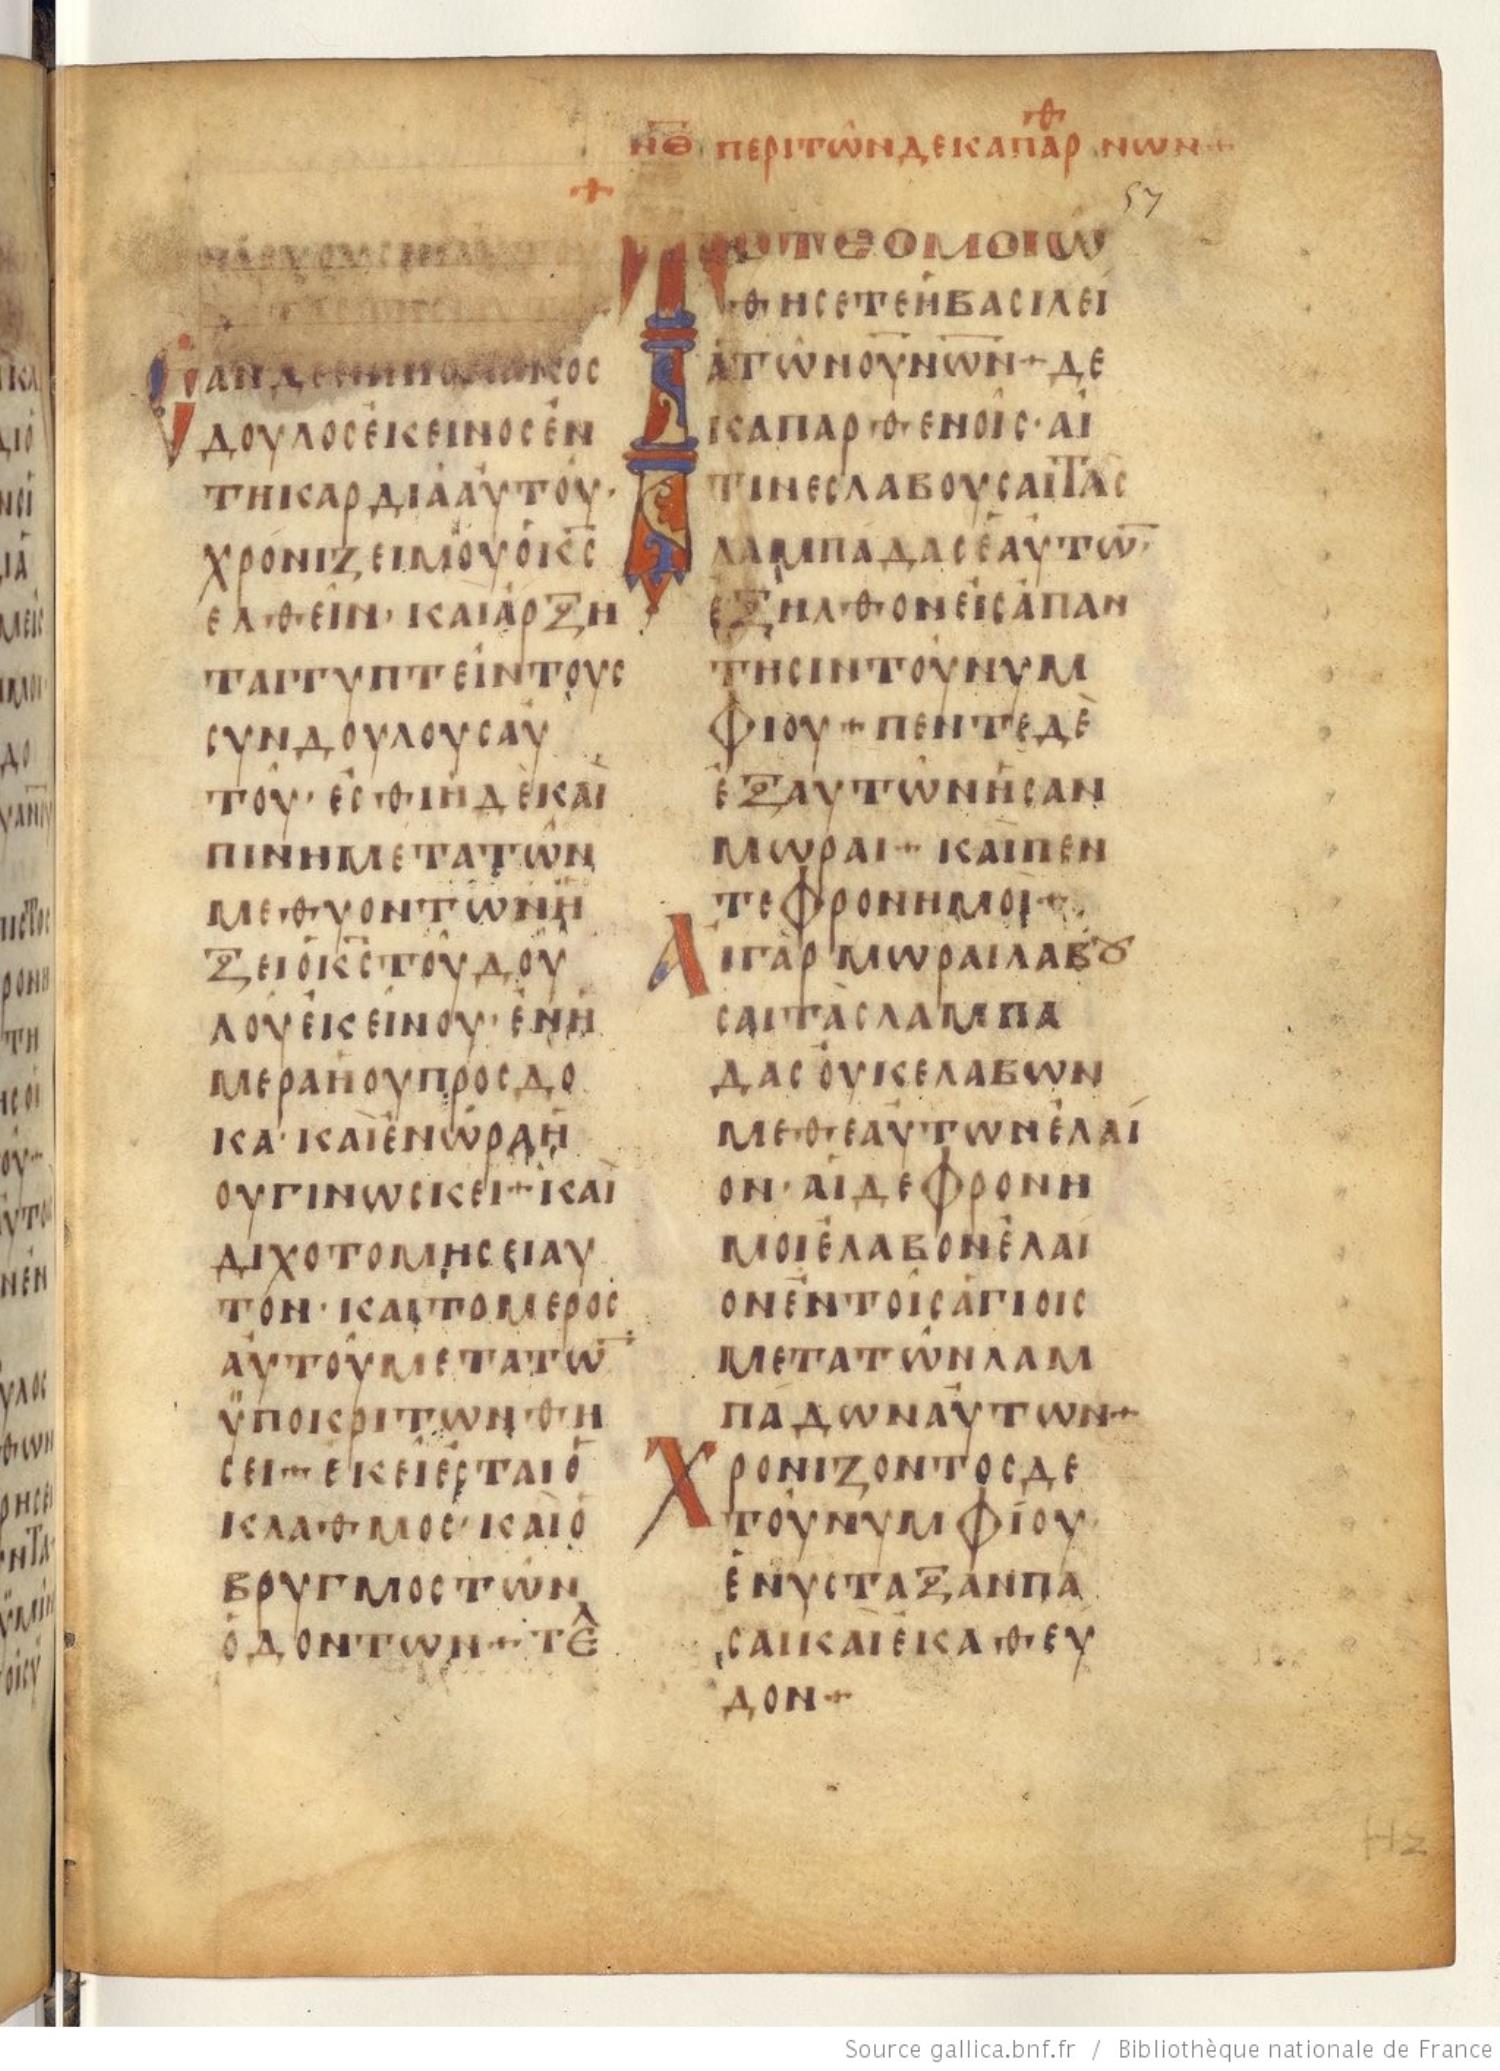 ΝΘ ΠΕΡΙ ΤΩΝ ΔΕΚΑ ΠΑΡΘΝΩΝ +
57
ΑΝ ΔΕ ΕΙΠΗ Ο ΚΑΚΟΣ
ΔΟΥΛΟΣ ΕΚΕΙΝΟΣ ΕΝ
ΤΗ ΚΑΡΔΙΑ ΑΥΤΟΥ·
ΧΡΟΝΙΖΕΙ ΜΟΥ Ο ΚΣ
ΕΛΘΕΙΝ· ΚΑΙ ΑΡΞΗ
ΤΑΙ ΓΥΠΤΕΙΝ ΤΟΥΣ
ΣΥΝΔΟΥΛΟΥΣ ΑΥ
ΤΟΥ· ΕΣΘΙΗ ΔΕ ΚΑΙ
ΠΙΝΗ ΜΕΤΑ ΤΩΝ
ΜΕΘΥΟΝΤΩΝ Η
ΞΕΙ Ο ΚΣ ΤΟΥ ΔΟΥ
ΛΟΥ ΕΚΕΙΝΟΥ· ΕΝ Η
ΜΕΡΑ Η ΟΥ ΠΡΟΣΔΟ
ΚΑ· ΚΑΙ ΕΝ ΩΡΑ Η
ΟΥ ΓΙΝΩΣΚΕΙ + ΚΑΙ
ΔΙΧΟΤΟΜΗΣΕΙ ΑΥ
ΤΟΝ· ΚΑΙ ΤΟ ΜΕΡΟΣ
ΑΥΤΟΥ ΜΕΤΑ ΤΩ̅
ΫΠΟΚΡΙΤΩΝ ΘΗ
ΣΕΙ + ΕΚΕΙ ΕΣΤΑΙ Ο
ΚΛΑΘΜΟΣ· ΚΑΙ Ο
ΒΡΥΓΜΟΣ ΤΩΝ
ΟΔΟΝΤΩΝ + ΤΕΛ
ΤΟΤΕ ΟΜΟΙΩ
ΘΗΣΕΤΕ Η ΒΑΣΙΛΕΙ
Α ΤΩΝ ΟΥΝΩΝ + ΔΕ
ΚΑ ΠΑΡΘΕΝΟΙΣ· ΑΙ
ΤΙΝΕΣ ΛΑΒΟΥΣΑΙ ΤΑΣ
ΛΑΜΠΑΔΑΣ ΕΑΥΤΩ̅
ΕΞΗΛΘΟΝ ΕΙΣ ΑΠΑΝ
ΤΗΣΙΝ ΤΟΥ ΝΥΜ
ΦΙΟΥ + ΠΕΝΤΕ ΔΕ
ΕΞ ΑΥΤΩΝ ΗΣΑΝ
ΜΩΡΑΙ + ΚΑΙ ΠΕΝ
ΤΕ ΦΡΟΝΗΜΟΙ +
ΑΙ ΓΑΡ ΜΩΡΑΙ ΛΑΒȢ
ΣΑΙ ΤΑΣ ΛΑΜΠΑ
ΔΑΣ ΟΥΚ ΕΛΑΒΩΝ
ΜΕΘ ΕΑΥΤΩΝ ΕΛΑΙ
ΟΝ· ΑΙ ΔΕ ΦΡΟΝΗ
ΜΟΙ ΕΛΑΒΟΝ ΕΛΑΙ
ΟΝ ΕΝ ΤΟΙΣ ΑΓΙΟΙΣ
ΜΕΤΑ ΤΩΝ ΛΑΜ
ΠΑΔΩΝ ΑΥΤΩΝ +
ΧΡΟΝΙΖΟΝΤΟΣ ΔΕ
ΤΟΥ ΝΥΜΦΙΟΥ
ΕΝΥΣΤΑΞΑΝ ΠΑ
ΣΑΙ ΚΑΙ ΕΚΑΘΕΥ
ΔΟΝ +
Source gallica.bnf.fr / Bibliothèque nationale de France